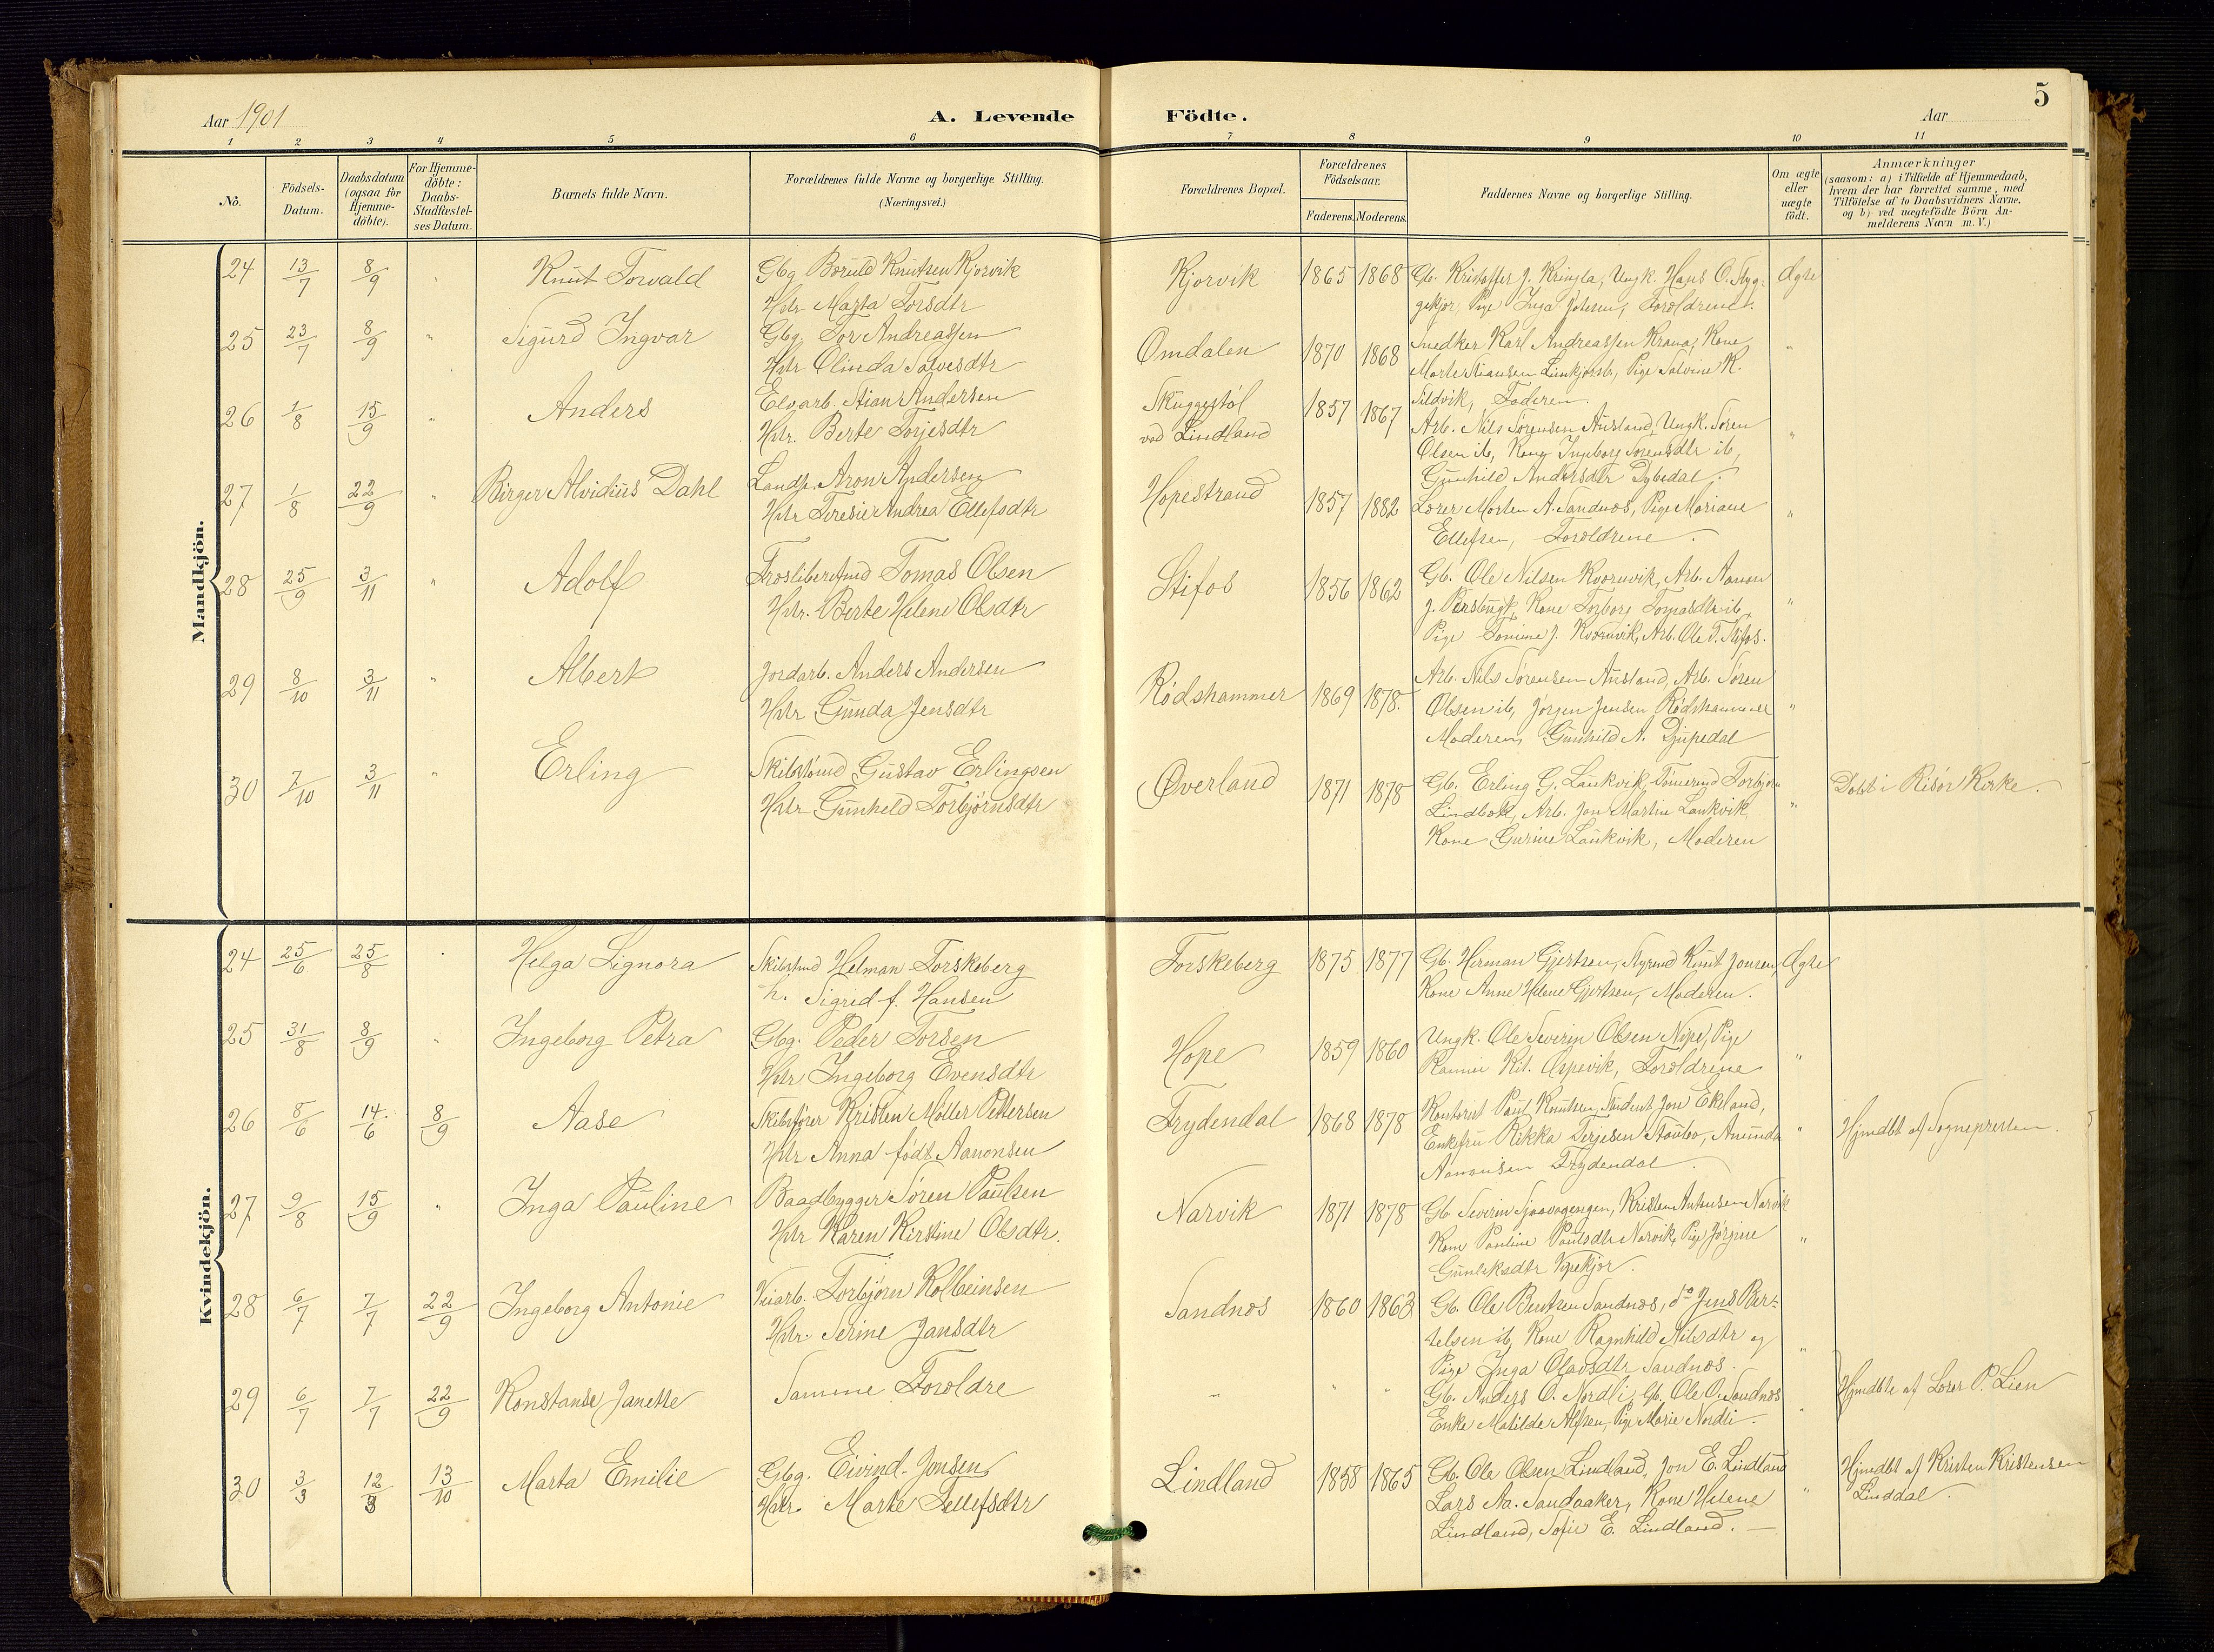 5
Aar 1901
A. Levende Födte.
Aar
1 2 3 4 5 6 7 8 9 10 11
No.
Födsels-Datum.
Daabsdatum (ogsaa for Hjemme-döbte).
For Hjemme-döbte: Daabs-Stadfæstel-ses Datum.
Barnets fulde Navn.
Forældrenes fulde Navne og borgerlige Stilling. (Næringsvei.)
Forældrenes Bopæl.
Forældrenes Födselsaar.
Faderens. Moderens.
Faddernes Navne og borgerlige Stilling.
Om ægte eller uægte födt.
Anmærkninger
(saasom: a) i Tilfælde af Hjemmedaab,
hvem der har forrettet samme, med
Tilföielse af to Daabsvidners Navne.
og b) ved uægtefödte Börn An-
melderens Navn m. V.)
Mandkjön.
24 13/7 8/9 " Knut Torvald Gbg Boruld Knutsen Kjorvik Kjorvik 1865 1868 Gb. Kristoffer J. Kringla, Ungk. Hans O. Styg- Ægte
Hstr Marta Torsdtr gekjær, Pige Inga Johsen, Forældrene.
25 23/7 8/9 " Sigurd Ingvar Gbg. Tov Andreassen Omdalen 1870 1868 Snedker Karl Andreassen Krana, Kone "
Hstr Olinda Salvesdtr Marte Stiansen Lienkjærsb., Pige Salvine K.
Sildvik, Faderen.
26 1/8 15/9 " Anders Elvarb. Stian Andersen Skuggestøl 1857 1867 Arb. Nils Sørensen Ausland, Ungk. Søren "
Hstr. Berte Torjesdtr ved Lindland Olsen ib, Kone Ingeborg Sørensdtr ib,
Gunhild Andersdtr Dybedal.
27 1/8 22/9 " Birger Alvidius Dahl Landh. Aron Andersen Hopestrand 1857 1882 Lærer Morten A. Sandnæs, Pige Mariane "
Hstr Teresie Andrea Ellefsdtr Ellefsen, Forældrene.
28 25/9 3/11 " Adolf Træsliberifmd Tomas Olsen Stifos 1856 1862 Gb. Ole Nilsen Kværnvik, Arb. Aanon "
Hstr. Berte Helene Olsdtr J. Kone Torborg Tomasdtr ib,
Pige Tomine J. Kværnvik, Arb. Ole T. Stifos.
29 8/10 3/11 " Albert Jordarb. Anders Andersen Rødshammer 1869 1878. Arb. Nils Sørensen Ausland, Arb. Søren "
Hstr Gunda Jensdtr Olsen ib, Jørgen Jensen Rødshammer
Moderen, Gunhild A. Djupedal
30 7/10 3/11 " Erling Skibstømd Gustav Erlingsen Øverland 1871 1878 Gb. Erling G. Laukvik, Tømmermd Torbjørn " Døbt i Risør Kirke.
Hstr Gunheld Torbjørnsdtr Lindbæk, Arb. Jon Martin Laukvik,
Kone Gurine Laukvik, Moderen
Kvindekjön.
24 25/6 25/8 " Helga Signora Skibstmd Helman Torskeberg Torskeberg 1875 1877 Gb. Herman Gjertsen, Styrmd Knut Jonsen, Ægte
h. Sigrid f. Hansen Kone Anne Helene Gjertsen, Moderen.
25 31/8 8/9 " Ingeborg Petra Gbg. Peder Torsen Hope 1859 1860 Ungk. Ole Severin Olsen Nipe, Pige "
Hstr Ingeborg Evensdtr Kil. Aspevik, Forældrene
26 8/6 14/6 8/9 Aase Skibsfører Kristen Møller Pettersen Frydendal 1868 1878 Kontorist Paul Knutsen, Student Jon Ekeland, " Hjmdbt af Sognepresten.
Hstr Anna født Aanonsen Enkefru Rikka Terjesen Staubo, Amunda
Aanonsen Frydendal.
27 9/8 15/9 " Inga Pauline Baadbygger Søren Paulsen Narvik 1871 1878 Gb. Severin Sjaavaagengen, Kristen Antonsen Narvik "
Hstr Karen Kirstine Olsdtr. Kone Pauline Paulsdtr Narvik, Pige Jørgine
Gunleksdtr Vipekjær.
28 6/7 7/7 22/9 Ingeborg Antonie Veiarb. Torbjørn Kolbeinsen Sandnæs 1860 1863 Gb. Ole Bentsen Sandnæs, do Jens Ber- "
Hstr. Serine Jansdtr telsen ib, Kone Ragnhild Nilsdtr og
Pige Inga Olavsdtr Sandnæs.
29 6/7 7/7 22/9 Konstanse Janette Samme Forældre " " " Gb. Anders O. Nordli, Gb. Ole O. Sandnæs " Hjmdbte af Lærer P. Lien
Enke Matilde Alfsen, Pige Marie Nordli.
30 3/3 12/3 13/10 Marta Emilie Gbg. Eivind Jonsen Lindland 1858 1865 Gb. Ole Olsen Lindland, Jon E. Lindland " Hjmdbt af Kristen Kristensen
Hstr. Marte Tellefsdtr Lars Aa. Sandaaker, Kone Helene Linddal.
Lindland, Sofie E. Lindland.